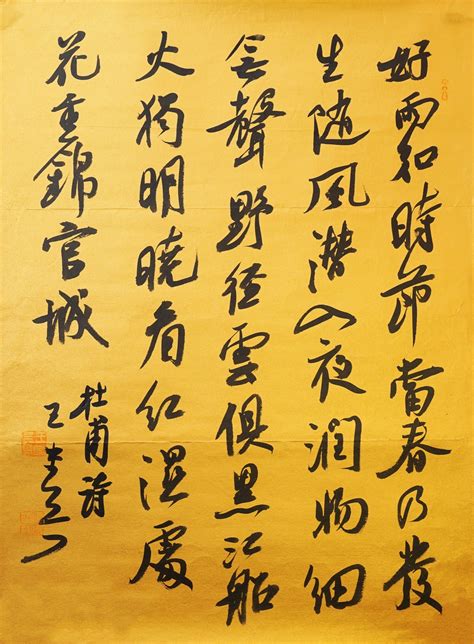 好雨知時節當春乃發
生随風潛入夜潤物細
無聲野徑雲俱黑江船
火獨明曉看紅濕處
花重錦官城
杜甫詩